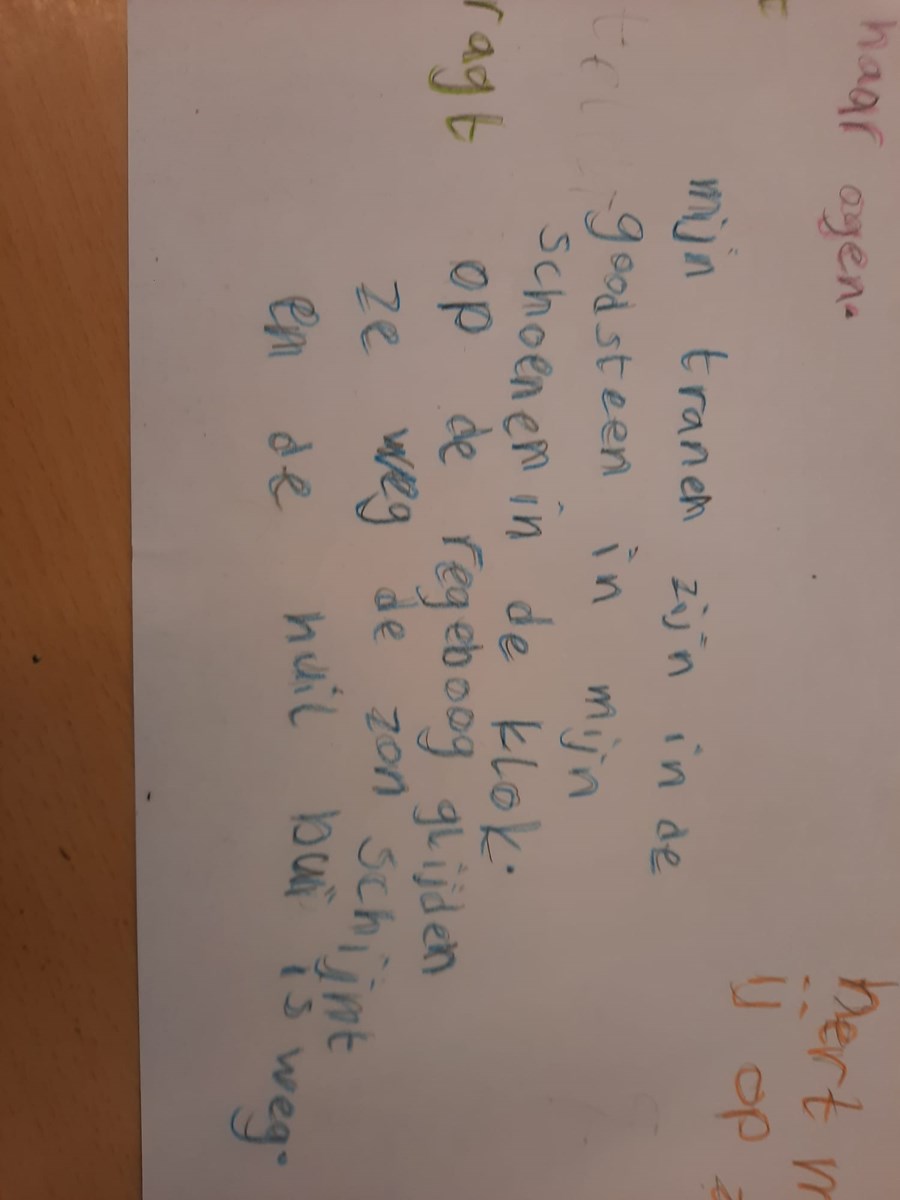 haar ogen.
hert m
ij op
mijn tranen zijn in de
goodsteen in mijn
schoenem in de klok.
ragt
op de regeboog glijden
ze weg de zon schijmt
em de huil bui is weg.